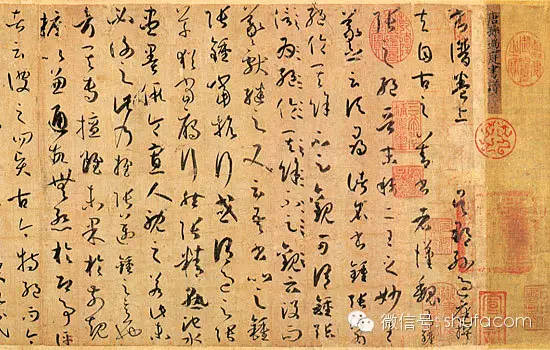 唐孫過庭書譜
書譜卷上 吳郡孫過庭撰
夫自古之善書者漢魏有鍾
張之絕晉末稱二王之妙王
羲之云頃尋諸名書鍾張信為
絕倫其餘不足觀可謂鍾張
信為絕倫其餘不足觀云沒而
羲獻繼之又云吾書比之鍾
張鍾當抗行或謂過之張
草猶當雁行然張精熟池水
盡墨假令寡人耽之若此未
必謝之此乃推張邁鍾之意也
考其專擅雖未果於前規
摭以兼通故無慚於即事評
者云彼之四賢古今特絕而今
微信号:shufacom